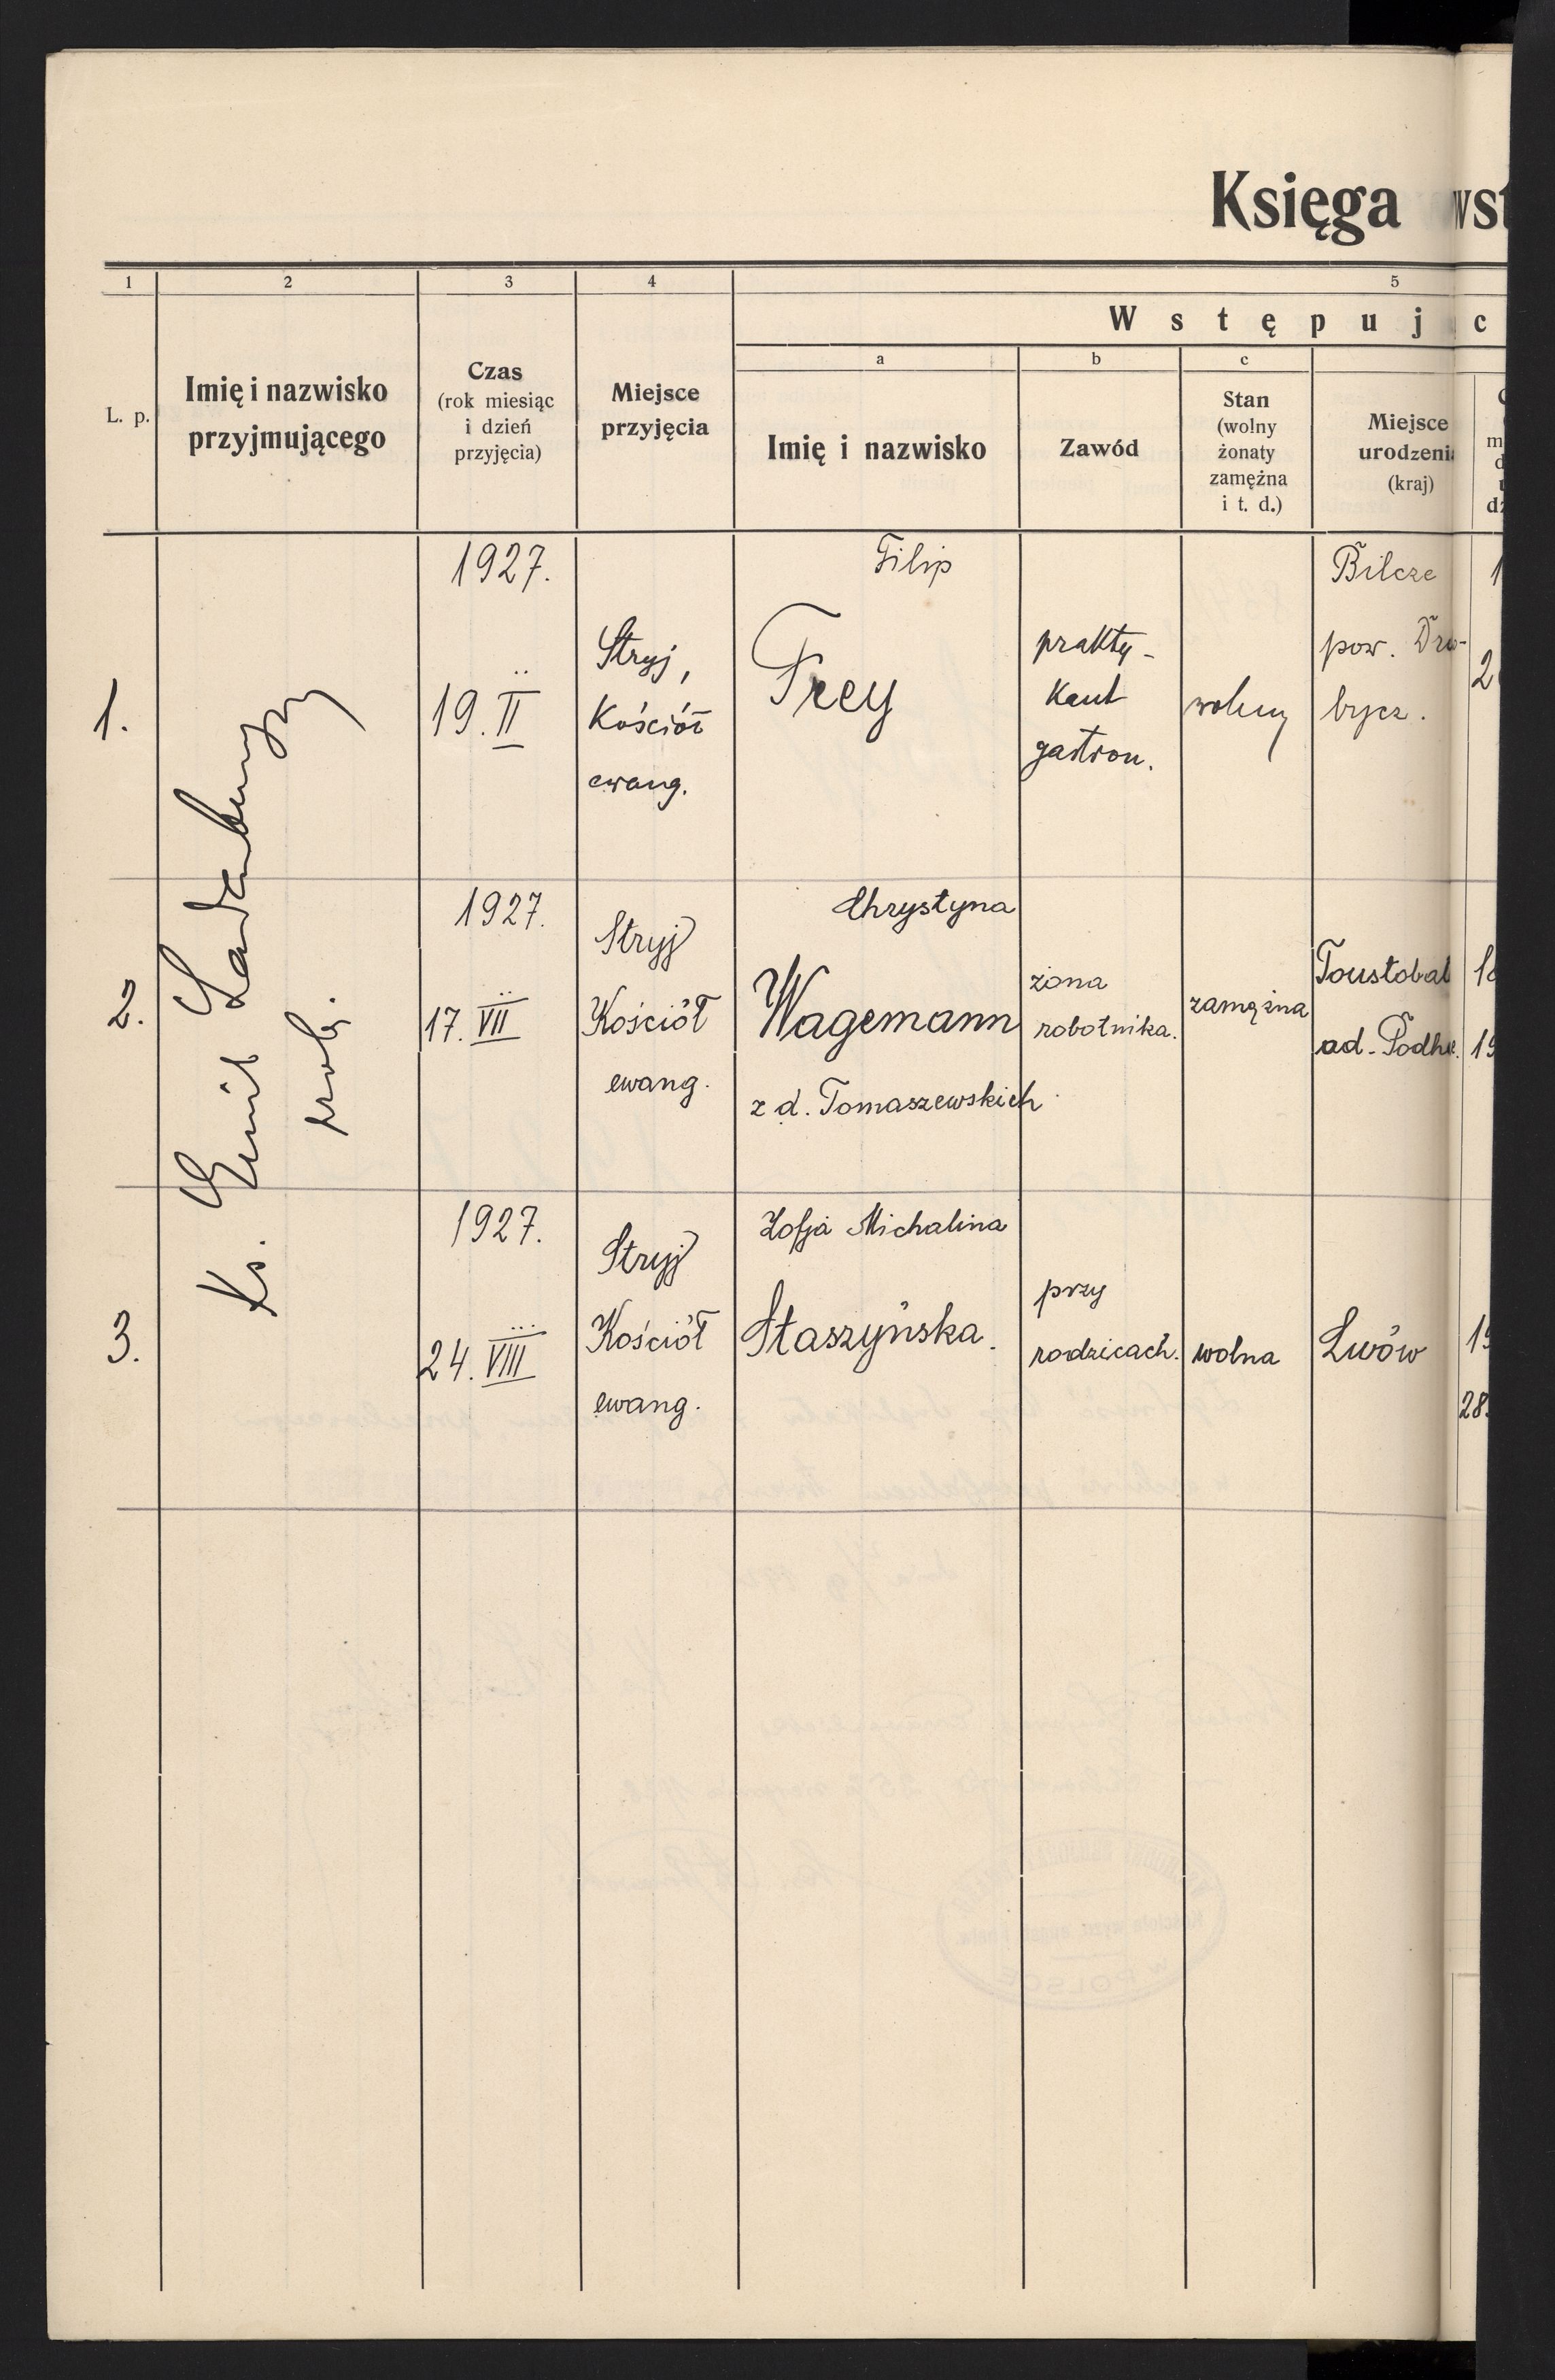 Księga wst
1 2 3 4 5
W s t ę p u j c
a b c
L. p.
Imię i nazwisko
przyjmującego
Czas
(rok miesiąc
i dzień
przyjęcia)
Miejsce
przyjęcia
Imię i nazwisko
Zawód
Stan
(wolny
żonaty
zamężna
i t. d.)
Miejsce
urodzeni
(kraj)
Ks. Emil Ladenberger
prob.
1.
1927.
19. II
Stryj,
Kościół
ewang.
Filip
Frey
prakty-
kant
gastron.
wolny
Bilcze
pow. Dro-
bycz.
2.
1927.
17. VII
Stryj
Kościół
ewang.
Chrystyna
Wagemann
z d. Tomaszewskich
żona
robotnika.
zamężna
Toustobab
ad. Podha.
18
19
3.
1927.
24. VIII
Stryj
Kościół
ewang.
Zofja Michalina
Staszyńska.
przy
rodzicach.
wolna
Lwów
19
28.